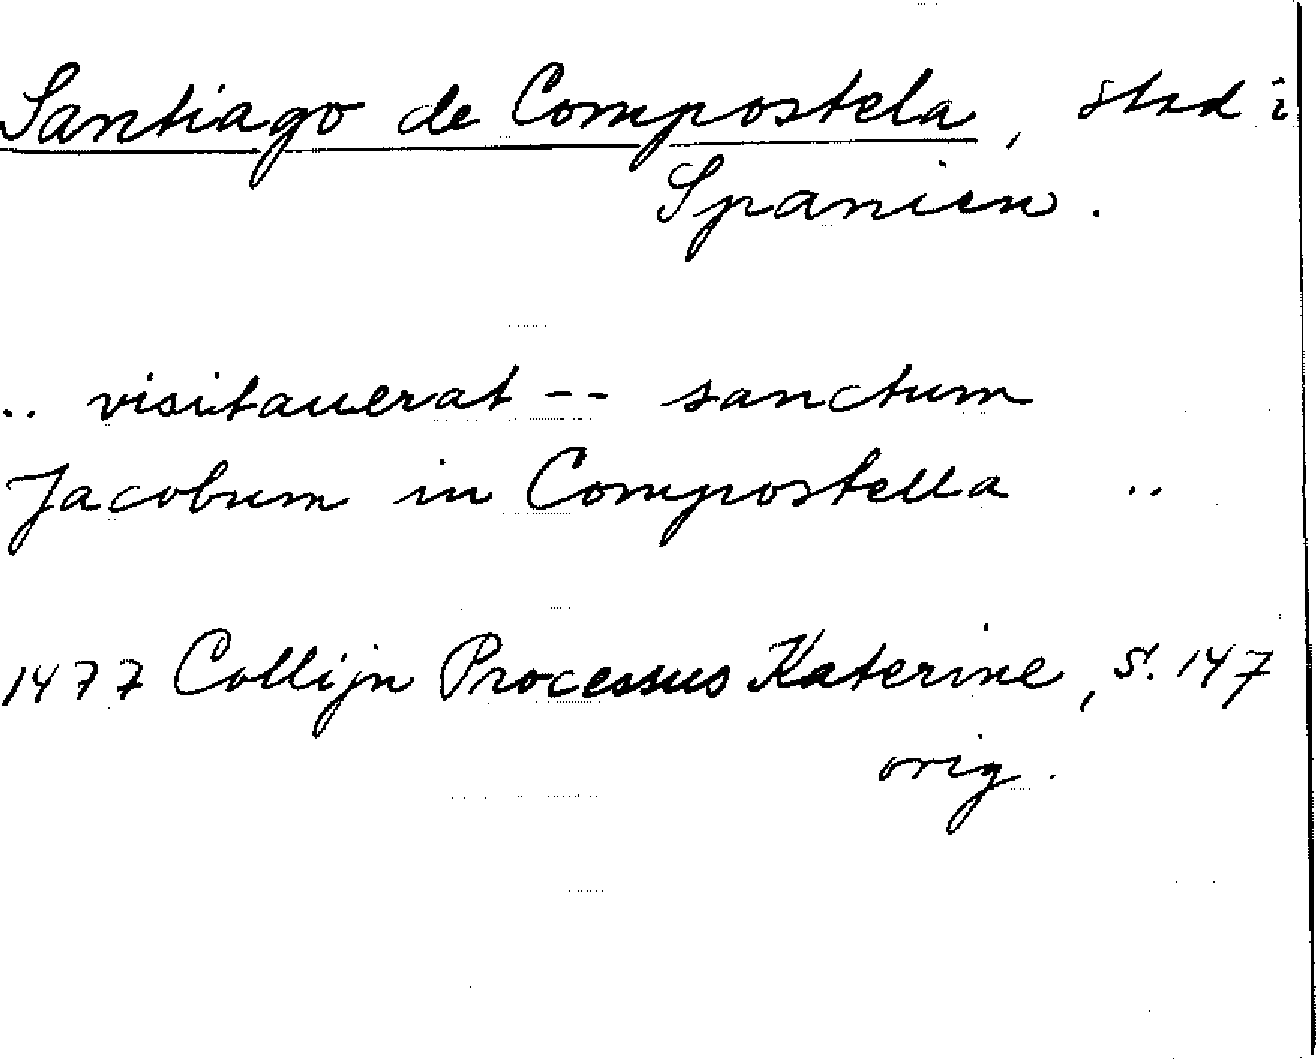 Santiago de Compostela, stad i
Spanien.
.. visitauerat -- sanctum
Jacobum in Compostella ..
1477 Collijn Processus Katerine, s. 147
orig.